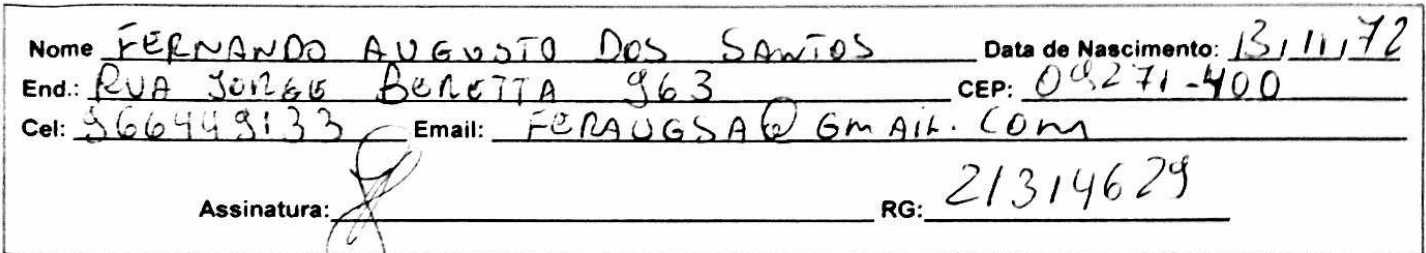 Nome FERNANDO AUGUSTO DOS SANTOS Data de Nascimento: 13/11/72
End.: RUA JORGE BERETTA 963 CEP: 09271-400
Cel: 966449133 Email: FERAUGSA@GMAIL.COM
Assinatura: RG: 21314629